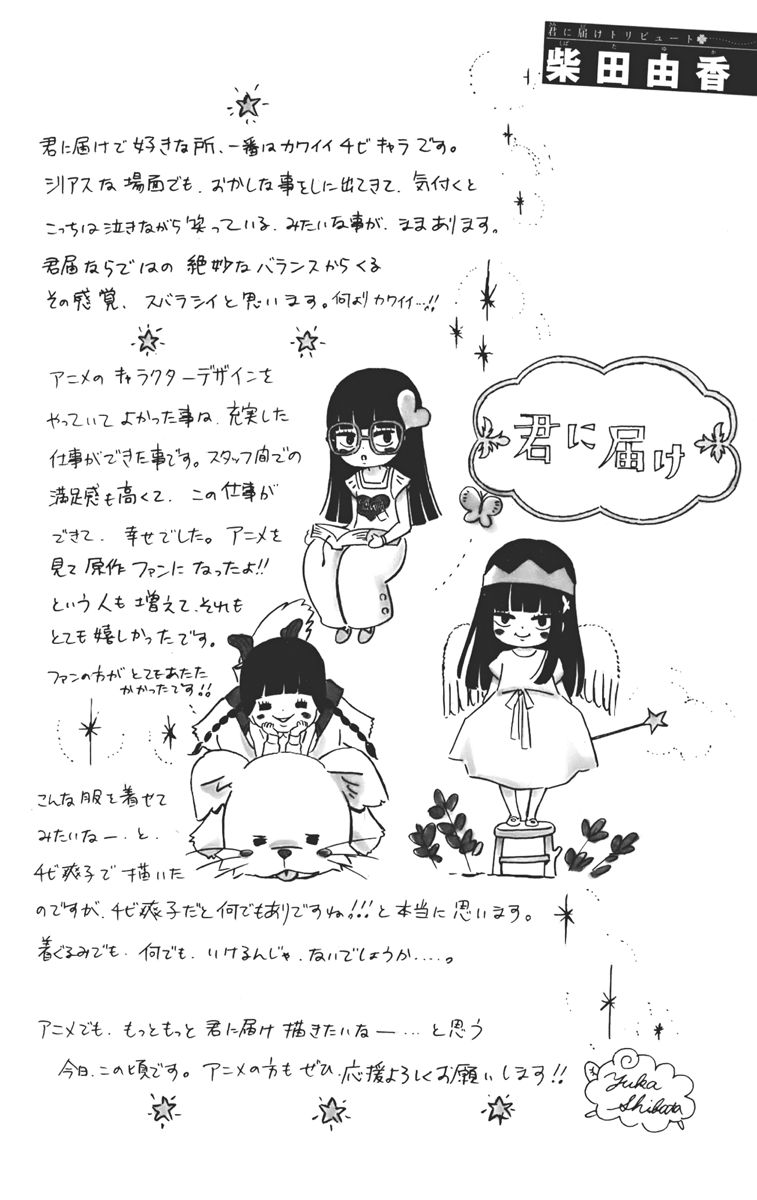 君に届けトリビュート
柴田由香
しばたゆか
君に届けで好きな所、一番はカワイイチビキャラです。
シリアスな場面でも、おかしな事をしに出てきて、気付くと
こっちは泣きながら笑っている、みたいな事が、ままあります。
君届ならではの絶妙なバランスからくる
その感覚、スバラシイと思います。何よりカワイイ…!!
アニメのキャラクターデザインを
やっていてよかった事は、充実した
仕事ができた事です。スタッフ間での
満足感も高くて、この仕事が
できて、幸せでした。アニメを
見て原作ファンになったよ!!
という人も増えて、それも
とても嬉しかったです。
ファンの方がとてもあたた
かかったです!!
君に届け
こんな服を着せて
みたいなー、と、
チビ爽子で描いた
のですが、チビ爽子だと何でもありですね!!!と本当に思います。
着ぐるみでも、何でも、いけるんじゃ、ないでしょうか……。
アニメでも、もっともっと君に届け描きたいなー…と思う
今日、この頃です。アニメの方もぜひ、応援よろしくお願いします!!
Yuka
Shibata